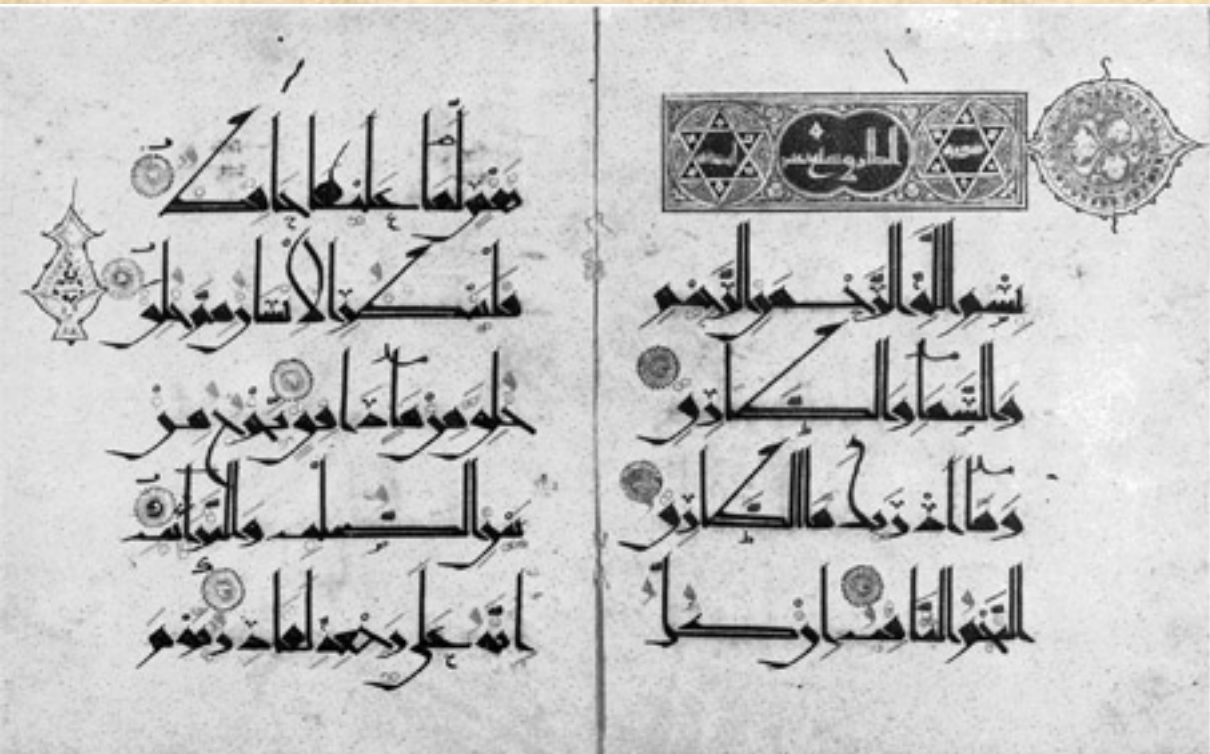 الطارق
بسم الله الرحمن الرحيم
والسما والطارق
وما ادريك ما الطارق
النجم الثاقب ان كل
نفس لما عليها حافظ
فلينظر الانسان مم خلق
خلق من ما دافق يخرج من
بين الصلب والترائب
انه على رجعه لقادر يوم